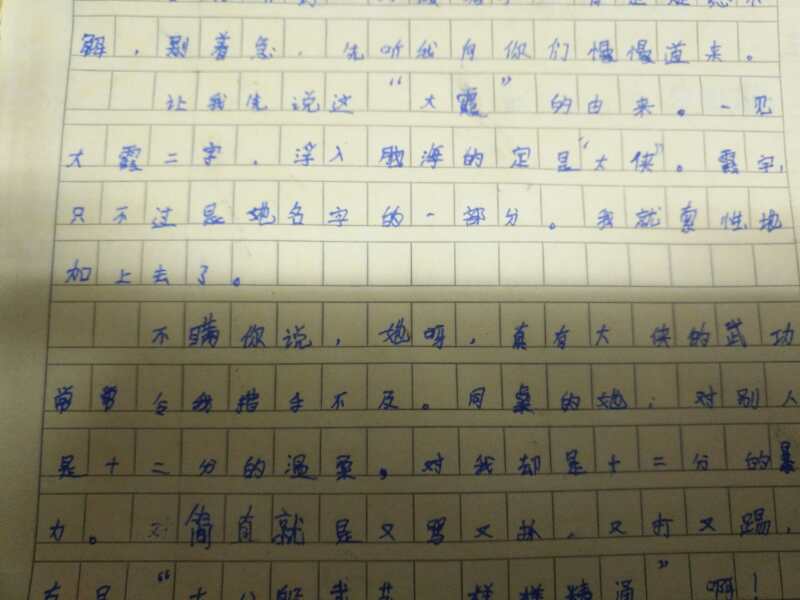 解，别着急，先听我向你们慢慢道来。
让我先说这“大霞”的由来。一见
大霞二字，浮入脑海的定是“大侠”。霞字，
只不过是她名字的一部分。我就索性地
加上去了。
不瞒你说，她呀，真有大侠的武功
常常令我措手不及。同桌的她，对别人
是十二分的温柔，对我却是十二分的暴
力。简直就是又骂又抓，又打又踢，
样样精通”啊！